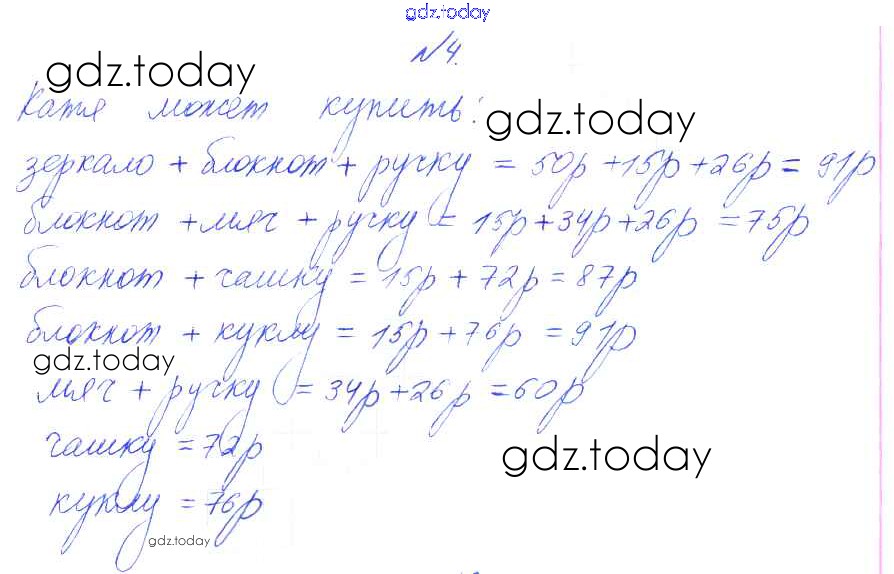 gdz.today
№4.
gdz.today
Катя может купить:
gdz.today
зеркало + блокнот + ручку = 50р + 15р + 26р = 91р
блокнот + мяч + ручку = 15р + 34р + 26р = 75р
блокнот + чашку = 15р + 72р = 87р
блокнот + куклу = 15р + 76р = 91р
gdz.today
мяч + ручку = 34р + 26р = 60р
чашку = 72р
gdz.today
куклу = 76р
gdz.today